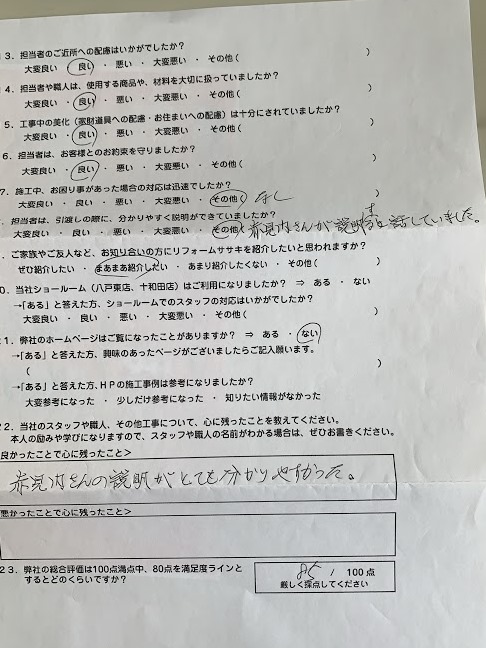 3. 担当者のご近所への配慮はいかがでしたか?
大変良い ・ 良い ・ 悪い ・ 大変悪い ・ その他( )
4. 担当者や職人は、使用する商品や、材料を大切に扱っていましたか?
大変良い ・ 良い ・ 悪い ・ 大変悪い ・ その他( )
5. 工事中の美化(家財道具への配慮・お住まいへの配慮)は十分にされていましたか?
大変良い ・ 良い ・ 悪い ・ 大変悪い ・ その他( )
6. 担当者は、お客様とのお約束を守りましたか?
大変良い ・ 良い ・ 悪い ・ 大変悪い ・ その他( )
7. 施工中、お困り事があった場合の対応は迅速でしたか?
大変良い ・ 良い ・ 悪い ・ 大変悪い ・ その他( なし
担当者は、引渡しの際に、分かりやすく説明ができていましたか?
大変良い ・ 良い ・ 悪い ・ 大変悪い ・ その他( 赤見内さんが説明 話していました。
ご家族やご友人など、お知り合いの方にリフォームササキを紹介したいと思われますか?
ぜひ紹介したい ・ まあまあ紹介したい ・ あまり紹介したくない ・ その他( )
0. 当社ショールーム(八戸東店、十和田店)はご利用になりましたか? ⇒ ある ・ ない
→「ある」と答えた方、ショールームでのスタッフの対応はいかがでしたか?
大変良い ・ 良い ・ 悪い ・ 大変悪い ・ その他( )
21. 弊社のホームページはご覧になったことがありますか? ⇒ ある ・ ない
→「ある」と答えた方、興味のあったページがございましたらご記入願います。
( )
→「ある」と答えた方、HPの施工事例は参考になりましたか?
大変参考になった ・ 少しだけ参考になった ・ 知りたい情報がなかった
22. 当社のスタッフや職人、その他工事について、心に残ったことを教えてください。
本人の励みや学びになりますので、スタッフや職人の名前がわかる場合は、ぜひお書きください。
良かったことで心に残ったこと>
赤見内さんの説明がとても分かりやすかった。
悪かったことで心に残ったこと>
23. 弊社の総合評価は100点満点中、80点を満足度ラインと
するとどのくらいですか?
85 / 100点
厳しく採点してください